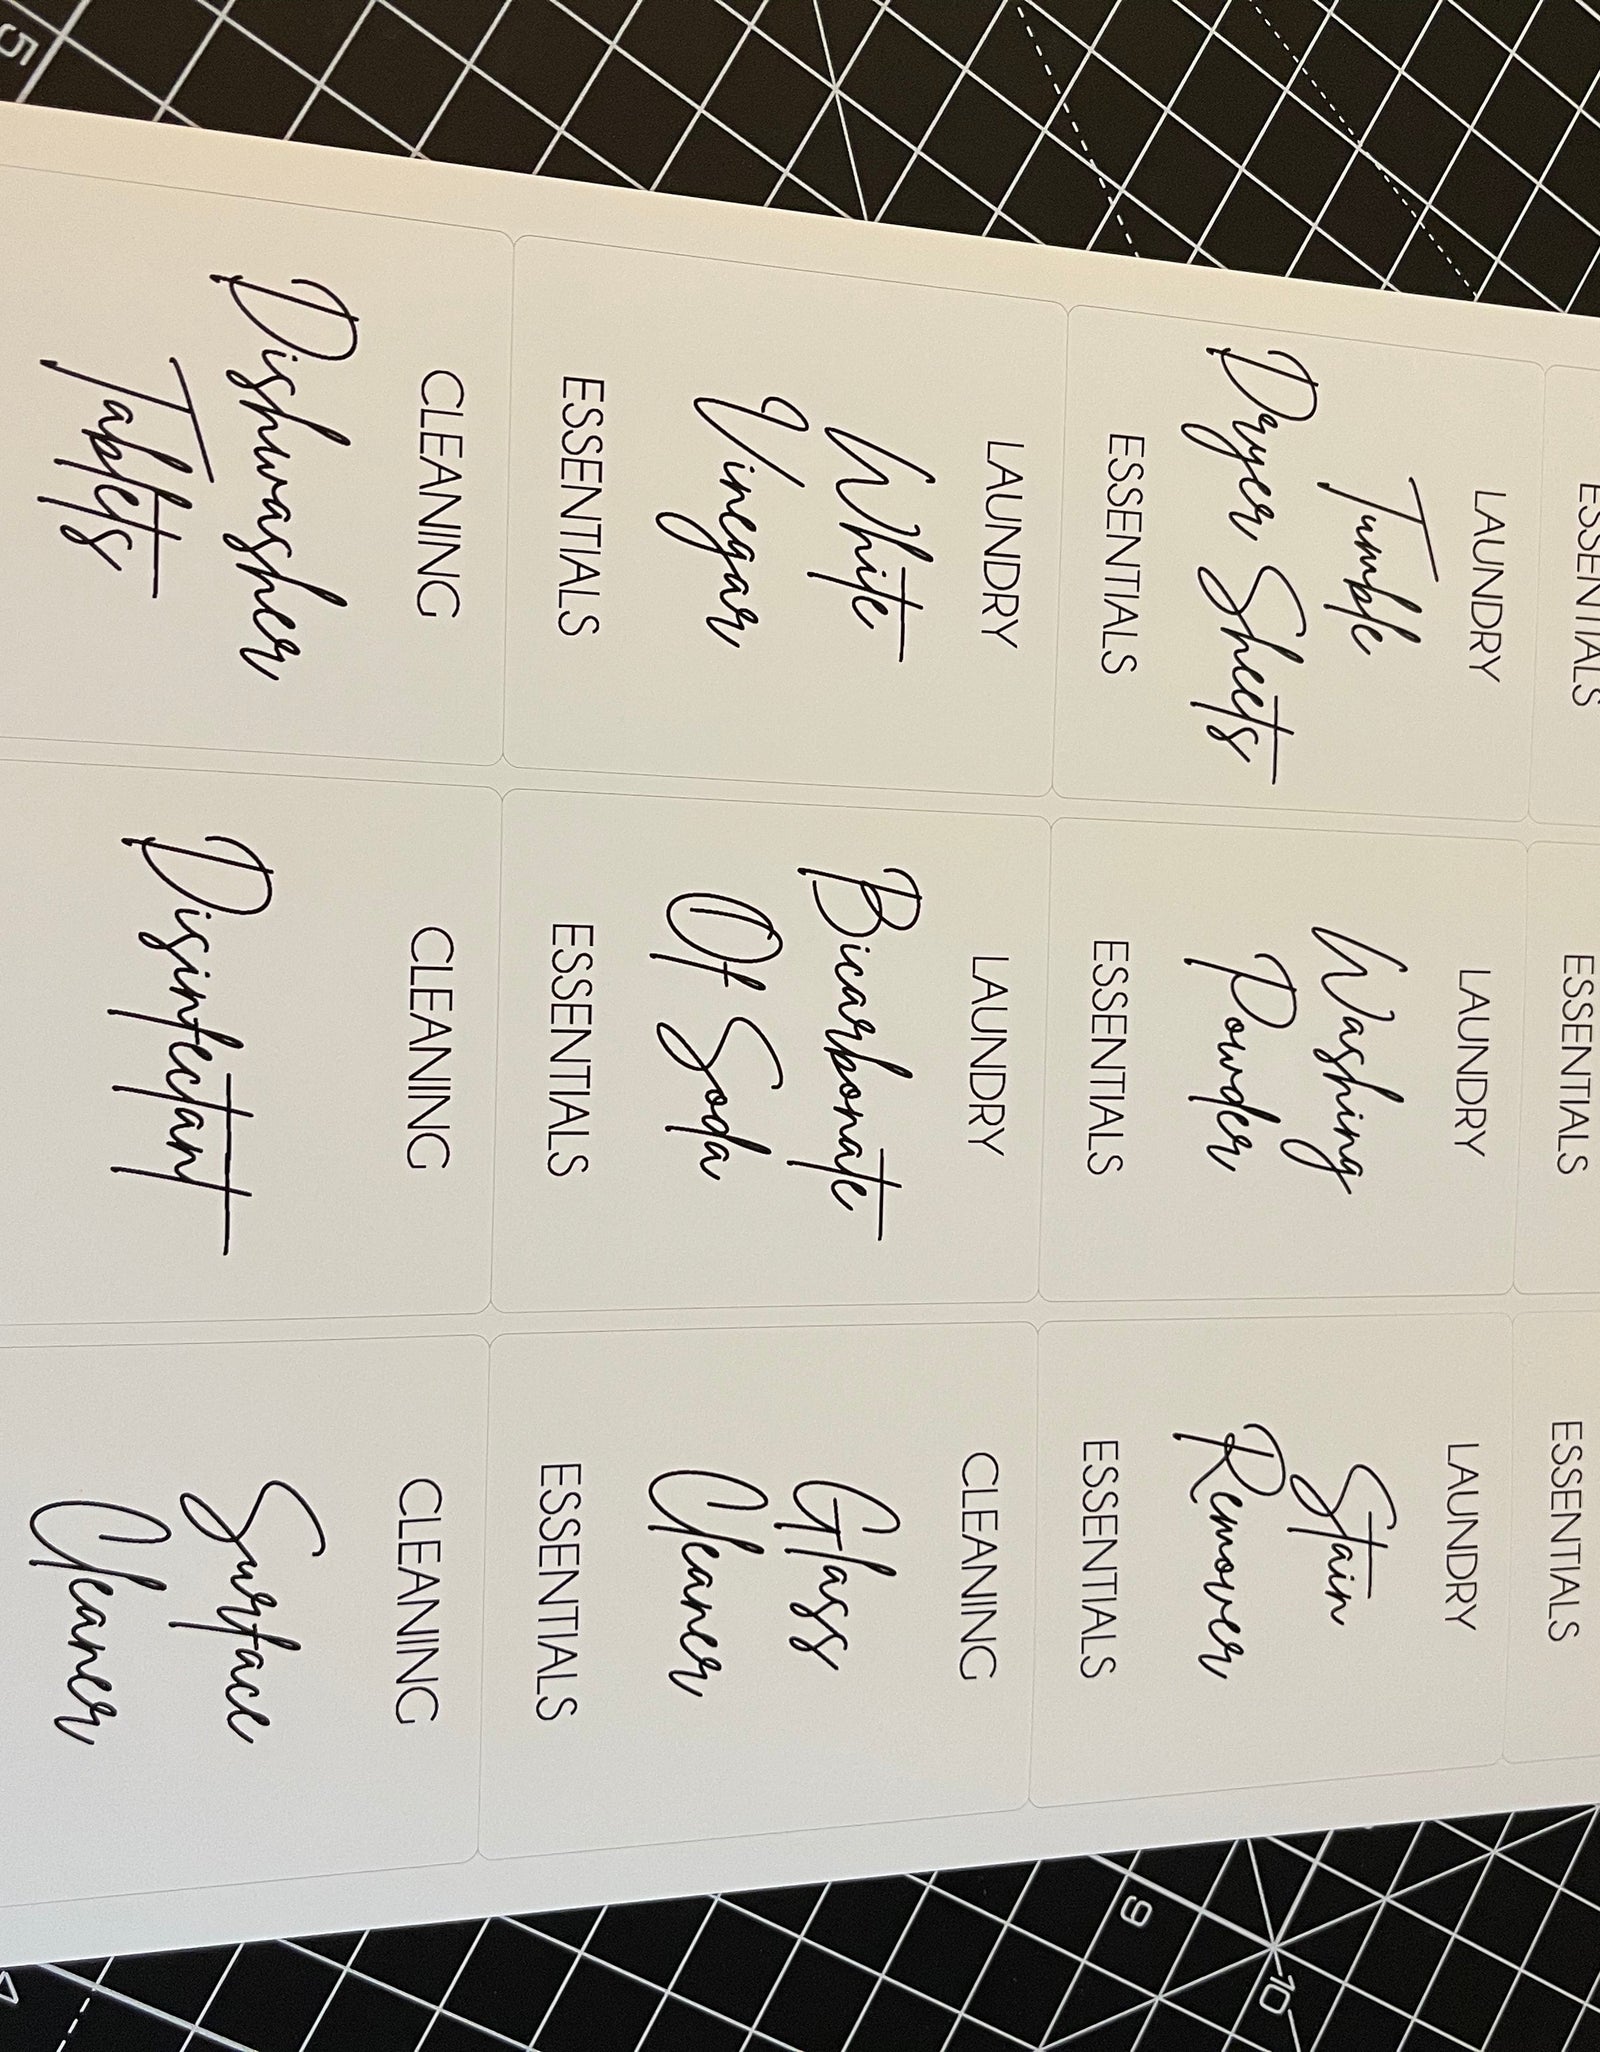 ESSENTIALS
ESSENTIALS
ESSENTIALS
LAUNDRY
Tumble
Dryer Sheets
ESSENTIALS
LAUNDRY
Washing
Powder
ESSENTIALS
LAUNDRY
Stain
Remover
ESSENTIALS
LAUNDRY
White
Vinegar
ESSENTIALS
LAUNDRY
Bicarbonate
Of Soda
ESSENTIALS
CLEANING
Glass
Cleaner
ESSENTIALS
CLEANING
Dishwasher
Tablets
CLEANING
Disinfectant
CLEANING
Surface
Cleaner
5
9
10